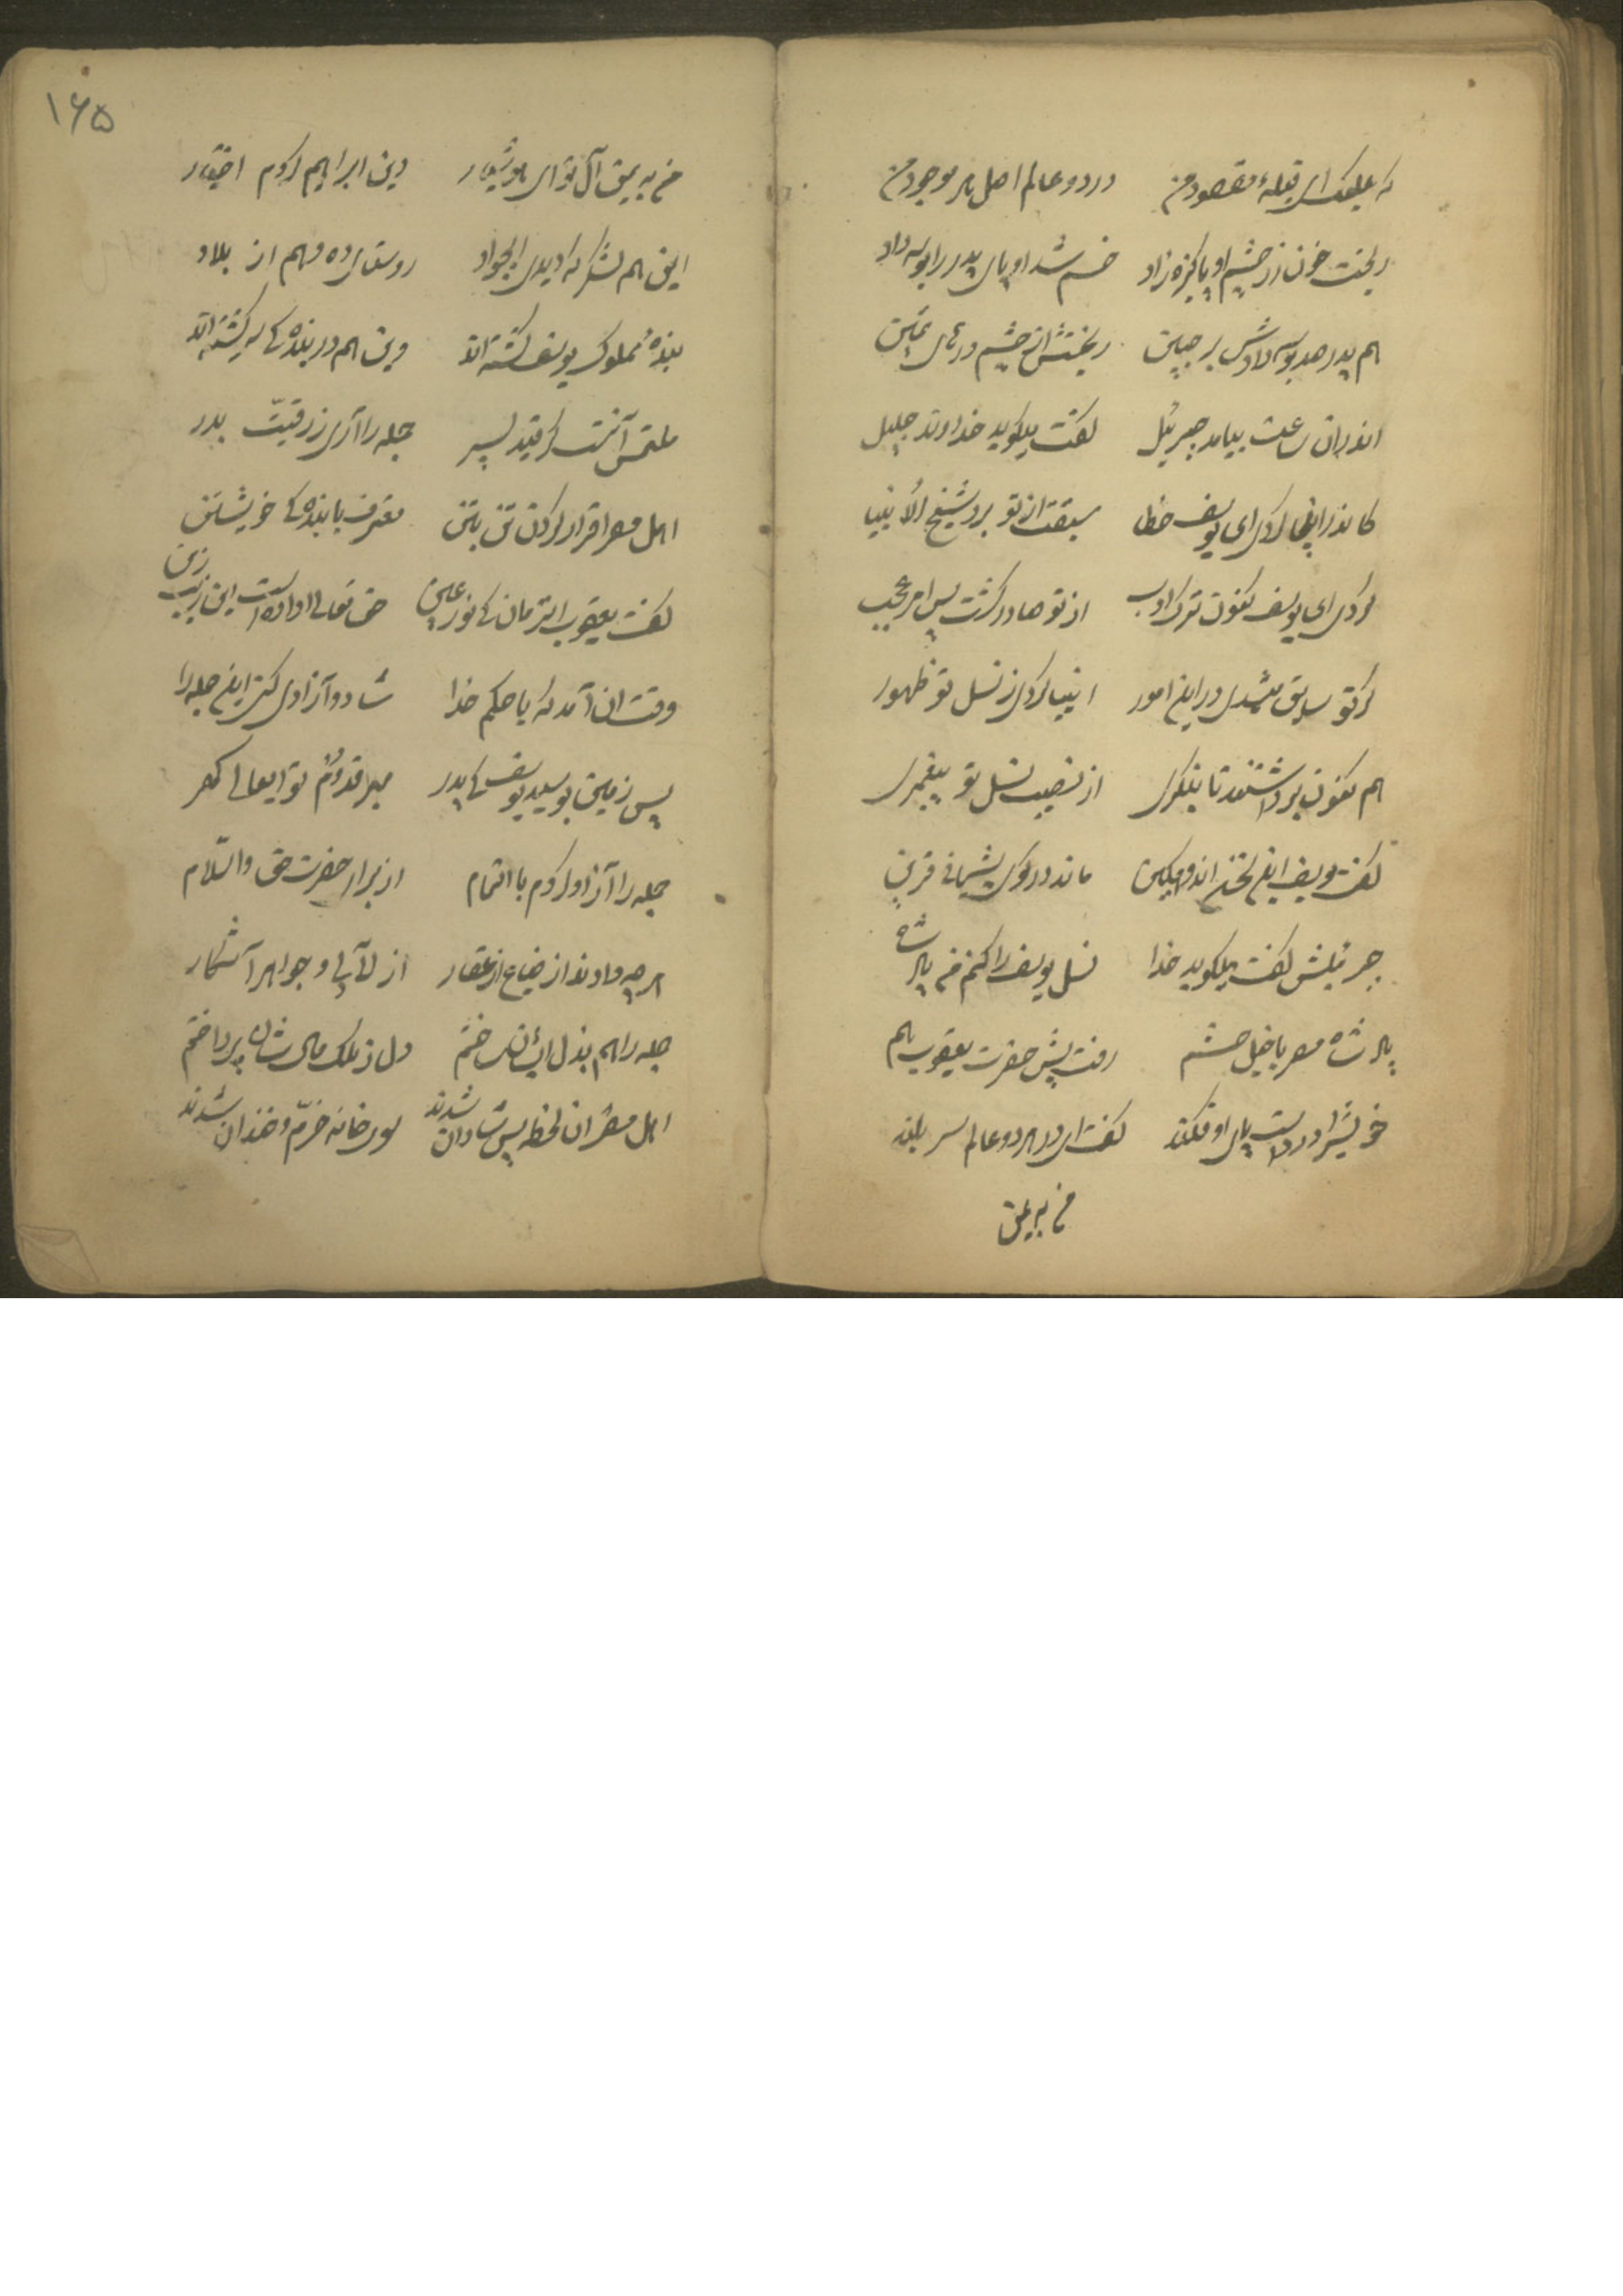 که علیک ای قبلهٔ مقصود من در دو عالم اصل هر موجود من
ریخت خون از چشم او پاکیزه‌زاد خم شد او پای پدر را بوسه داد
هم پدر صد بوسه دادش بر جبین ریختش از چشم درهای ثمین
اندران ساعت بیامد جبرئیل گفت میگوید خداوند جلیل
کاندر اینجا کردی ای یوسف خطا سبقت از تو برد شیخ الأنبیا
کردی ای یوسف کنون ترک ادب از تو صادر گشت بس امر عجب
گر تو سابق میشدی در این امور انبیا کردی ز نسل تو ظهور
هم کنون برداشتند تا بنگری از نصیب نسل تو پیغمبری
گفت یوسف این سخن اندوهگین ماند در کوی پشیمانی قرین
جبرئیلش گفت میگوید خدا نسل یوسف را کنم من پادشاه
پادشاه مصر با خیل حشم رفت پیش حضرت یعقوب هم
خویش را در دست و پای او فکند گفت ای در هر دو عالم سر بلند
من به یمن
۱۶۵
من به یمن آل تو ای هوشیار دین ابراهیم کردم اختیار
این هم لشکر که دیدی الجواد روستای ده و هم از بلاد
بندهٔ مملوک یوسف گشته‌اند وین هم در بندگی سرگشته‌اند
ملتمس آنست کز قید پسر جمله را آری ز رقیت بدر
اهل مصر اقرار کردن تن بتن معترف با بندگی خویشتن
گفت یعقوب انزمان کای نور عین حق تعالی داده است این زیب و زین
وقت ان آمد که با حکم خدا شاد و آزادی کن این جمله را
پس زمین بوسید یوسف کای پدر بهر قدوم تو ای عالی گهر
جمله را آزاد کردم با التمام از برای حضرت حق والسّلام
هرچه دادند از ضیاع از عقار از لآلی و جواهر آشکار
جمله را هم بذل ایشان ساختم دل ز ملک و مال شاه پرداختم
اهل مصر ان لحظه بس شادان شدند سوی خانه خرّم و خندان شدند